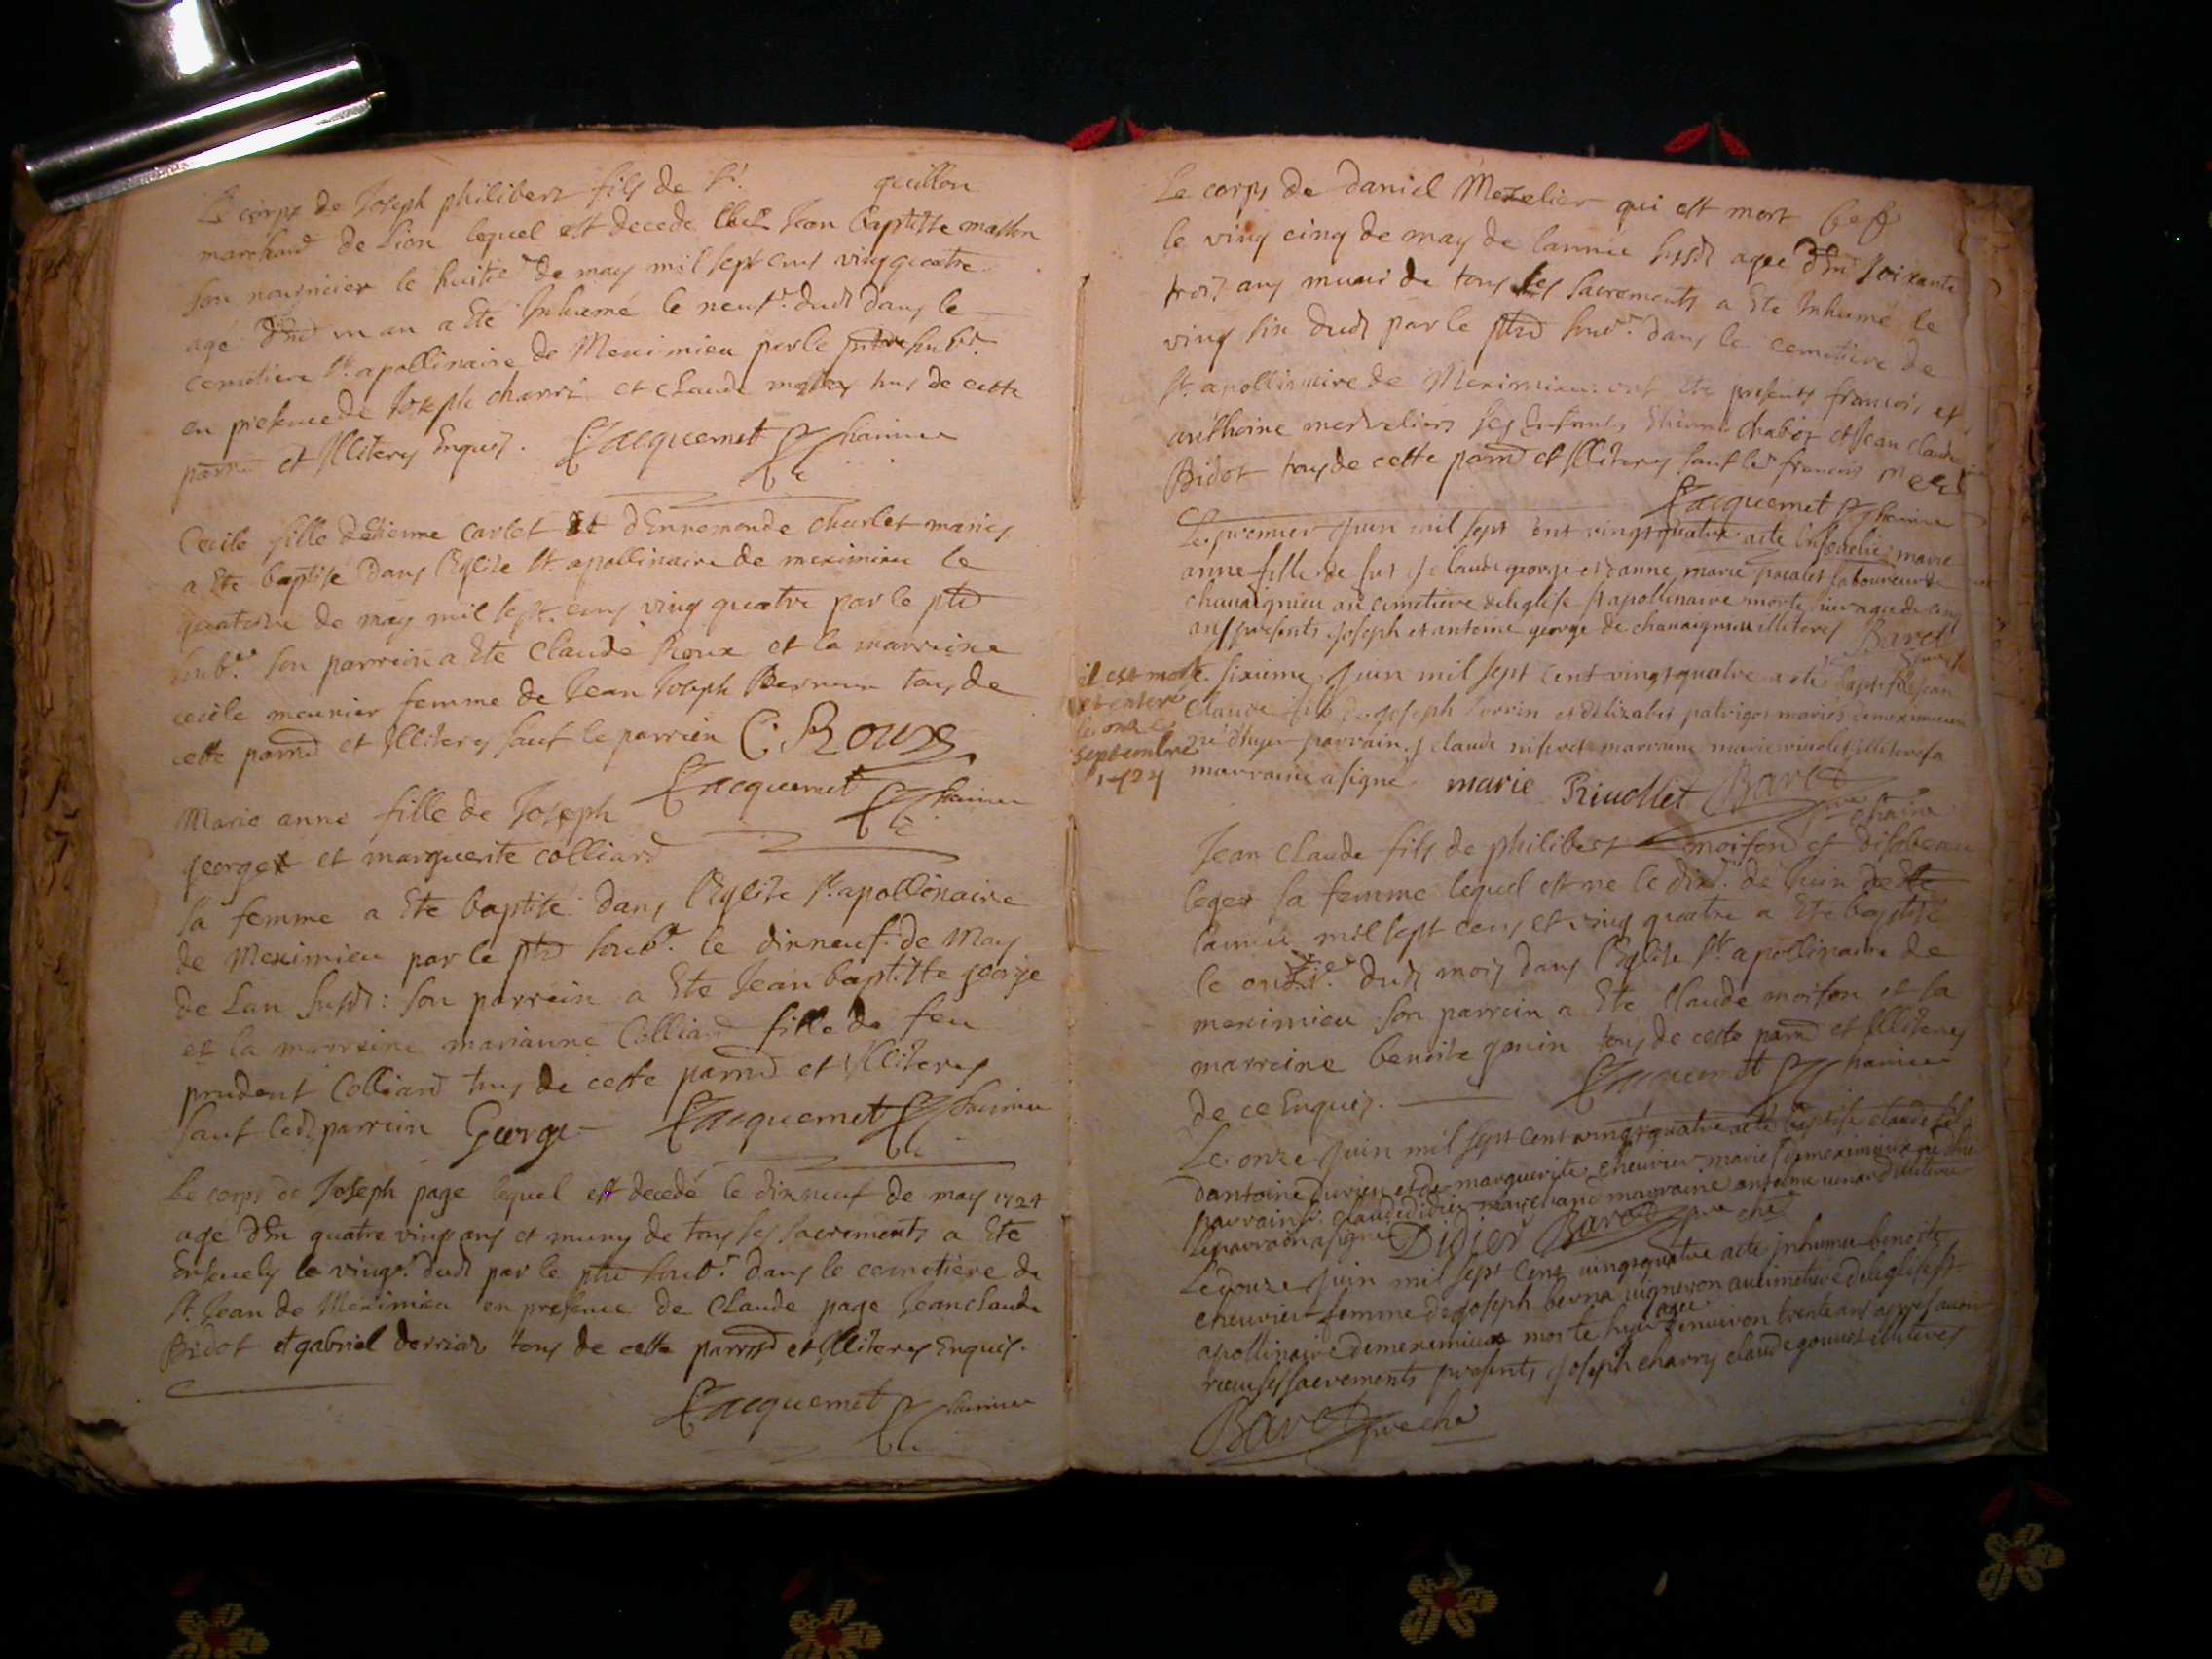 Le corps de Joseph philibert fils de Sr. guillon
marchand de Lion lequel est decede chez Jean baptiste masson
son nourricier le huitie de may mil sept cens ving quatre
agé d'En un an a Ete Inhumé le neufe. dudt dans le
cemetiere St. apollinaire de Meximieu par le pbre soubt.
en presence de Joseph charri et claude tous de cette
parrd et Illiteres Enquis. Jacquemet
Cecile fille d'Etienne carlet et d'Ennemonde charlet maries
a Ete baptisé dans l'Eglise St. apollinaire de meximieu le
quatorze de may mil sept cens ving quatre par le ptre
soubt. son parrein a Ete Claude Roux et la marreine
cecile meunier femme de Jean Joseph tous de
cette parrd et Illiteres sauf le parrein C. Roux
Jacquemet
Marie anne fille de Joseph
george et marguerite colliard
sa femme a Ete baptisé dans l'Eglise St. apollinaire
de Meximieu par le ptre soubt. le dixneufe. de May
de Lan susdt: son parrein a Ete Jean baptiste george
et la marreine marianne Colliard fille de feu
prudent Colliard tous de cette parrd et Illiteres
sauf ledt parrein George Jacquemet
Le corps de Joseph page lequel est decedé le dixneuf de may 1724
agé d'En quatre ving ans et muny de tous ses sacrements a Ete
Ensevely le vinge. dudt par le ptre soubt. dans le cemetiere de
St. Jean de Meximieu en presence de Claude page Jean claude
Bidot et gabriel derriaz tous de cette parrd et Illiteres Enquis.
Jacquemet
Le corps de Daniel Mezelier qui est mort
le ving cinq de may de l'année susdt agée d'En soixante
trois ans muni de tous les sacrements a Ete Inhumé le
ving six dudt par le ptre soubt. dans le cemetiere de
St. apollinaire de Meximieu: ont Ete presents francois et
anthoine mezeliers ses Enfants, Etienne chabot et Jean claude
Bidot tous de cette parrd et Illiteres sauf led francois
Jacquemet
Le premier Juin mil sept cent vingt quatre a ete Ensevelie marie
anne fille de feu claude george et d'anne marie laboureur de
chavaignieu au cimetiere de leglise St apollinaire morte hier agée de cinq
ans presents Joseph et antoine george de chavaignieu illiteres Baret
il est mort
et enteré
le onze
septembre
1724
Le sixieme Juin mil sept cent vingt quatre a ete baptisé Jean
Claude fils de Joseph et d'Elizabet patrigot mariés de meximieux
né d'hyer parrain claude marraine marie illiteres la
marraine a signé marie Riuollet Baret
Jean claude fils de philibert moifon et disabeau
leger sa femme lequel est ne le dixe. de Juin
l'année mil sept cens et ving quatre a Ete baptisé
le onzie. dudt mois dans l'Eglise St. apollinaire de
meximieu son parrein a Ete Claude moifon et la
marreine benoite gonin tous de cette parrd et Illiteres
de ce Enquis. Jacquemet
Le onze Juin mil sept cent vingt quatre a ete baptisé claude fils
dantoine durieu et de marguerite cheurier mariés de meximieux né hier
parrain Sr. claude didier marchand marraine illitere
le parrain a signé Didier Baret pre
Le douze Juin mil sept cent vingt quatre a ete Inhumée benoite
cheurier femme de Joseph berna uigneron au cimetiere de leglise St.
apollinaire de meximieux morte hyer agée denuiron trente ans apres auoir
receu ses sacrements presents Joseph charry claude illiteres
Baret pre